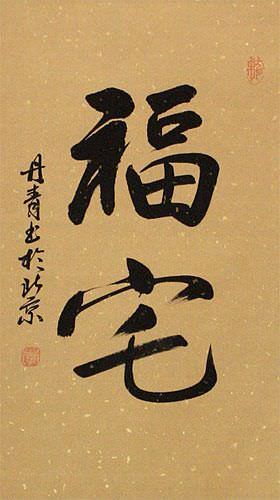 福宅
丹青书於北京